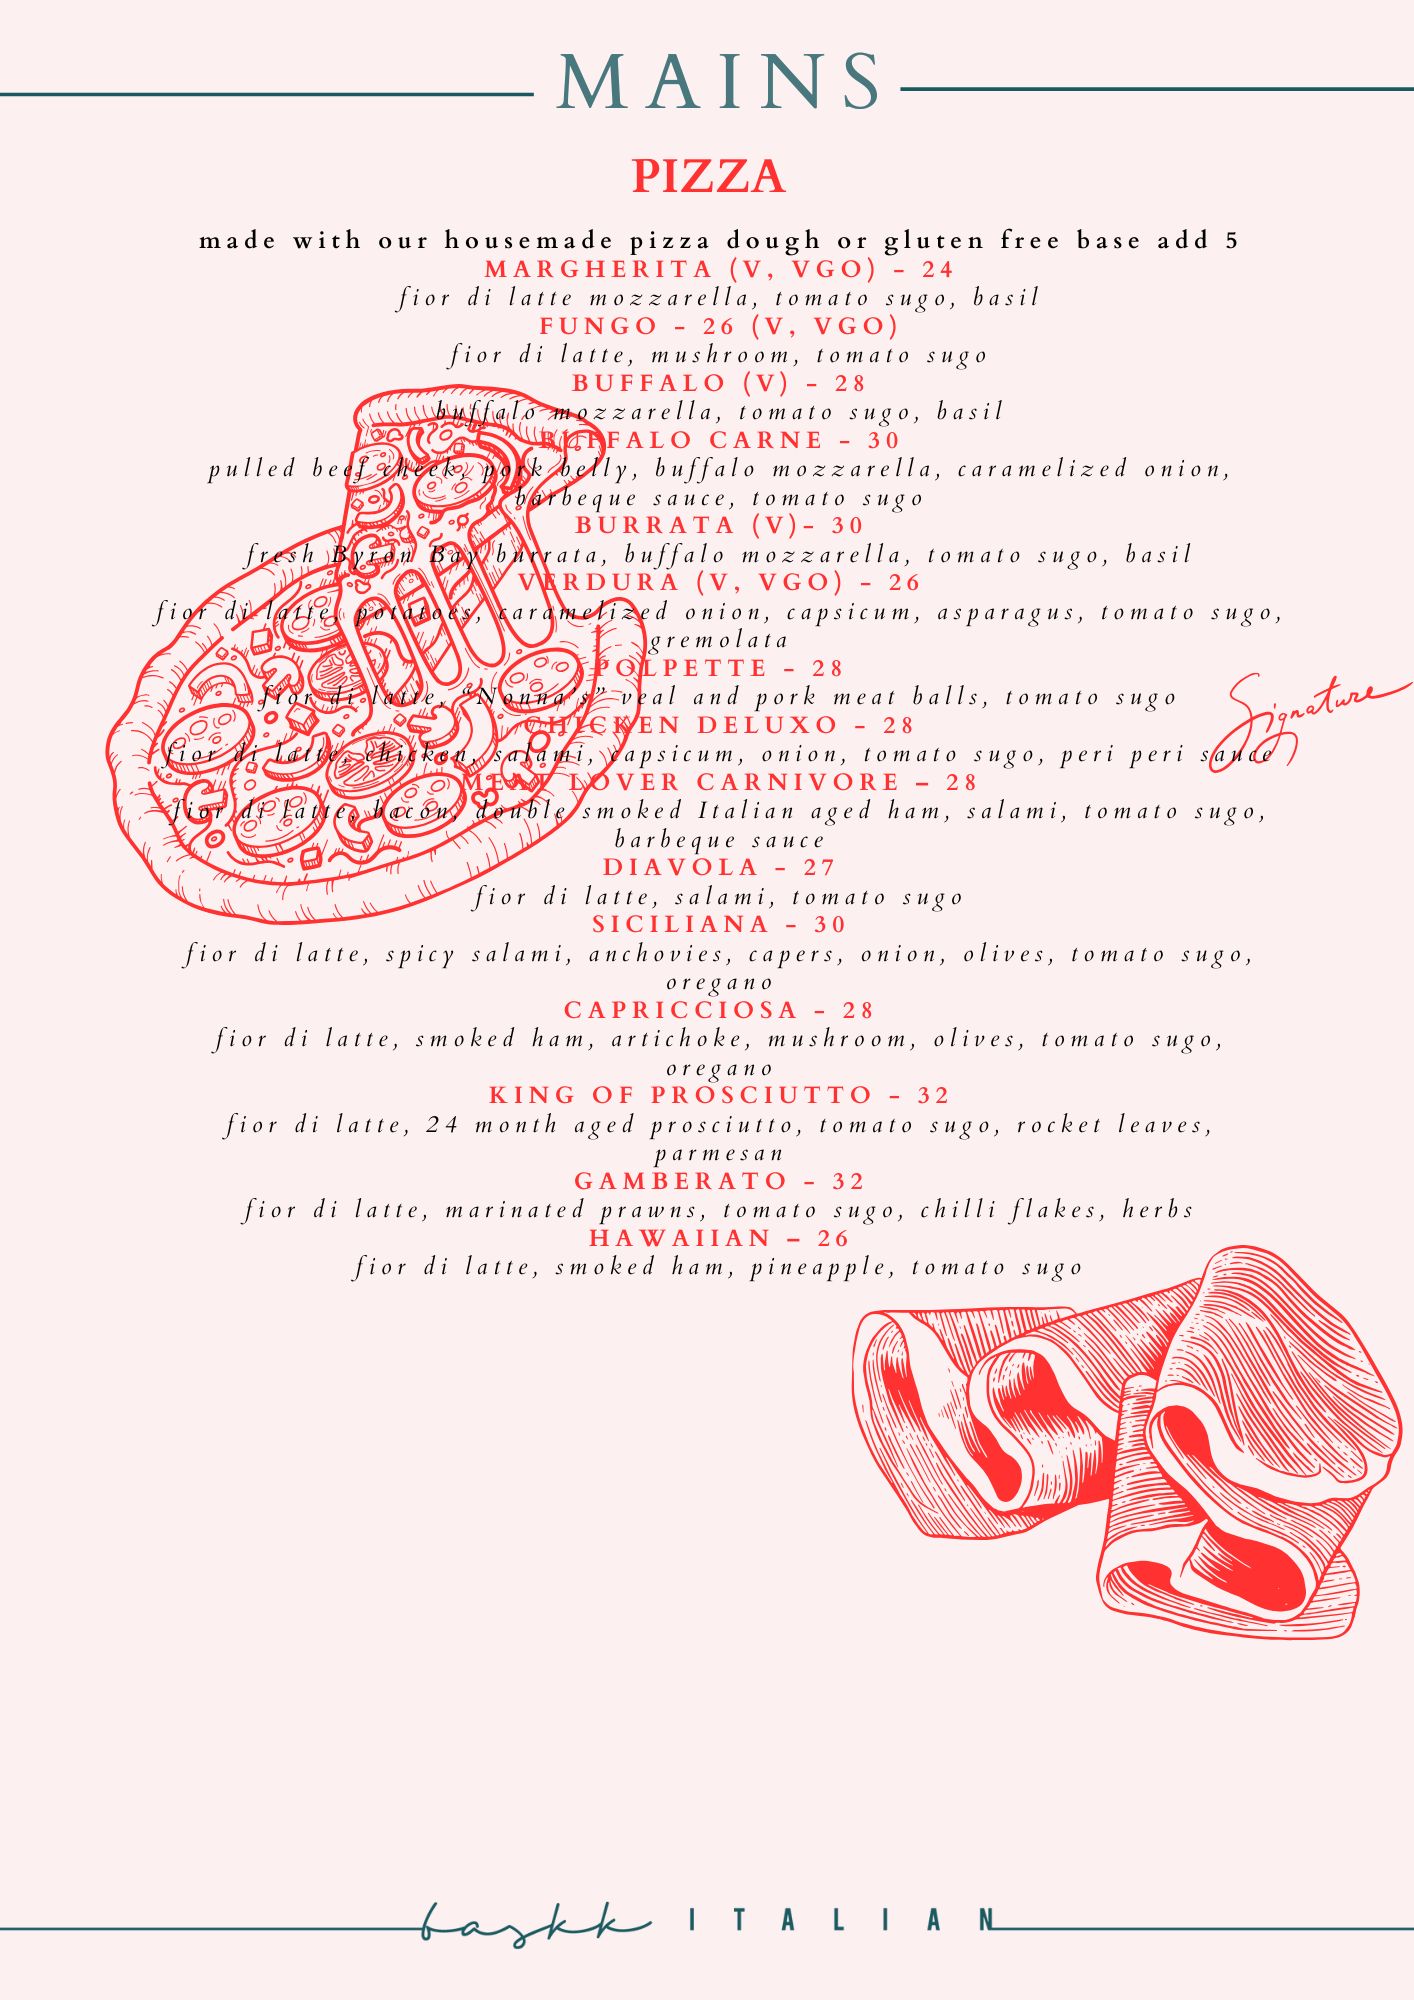 MAINS
PIZZA
made with our housemade pizza dough or gluten free base add 5
MARGHERITA (V, VGO) – 24
fior di latte mozzarella, tomato sugo, basil
FUNGO – 26 (V, VGO)
fior di latte, mushroom, tomato sugo
BUFFALO (V) – 28
buffalo mozzarella, tomato sugo, basil
BUFFALO CARNE – 30
pulled beef cheek, pork belly, buffalo mozzarella, caramelized onion,
barbeque sauce, tomato sugo
BURRATA (V)– 30
fresh Byron Bay burrata, buffalo mozzarella, tomato sugo, basil
VERDURA (V, VGO) – 26
fior di latte, potatoes, caramelized onion, capsicum, asparagus, tomato sugo,
gremolata
POLPETTE – 28
fior di latte, “Nonna’s” veal and pork meat balls, tomato sugo
Signature
CHICKEN DELUXO – 28
fior di latte, chicken, salami, capsicum, onion, tomato sugo, peri peri sauce
MEAT LOVER CARNIVORE – 28
fior di latte, bacon, double smoked Italian aged ham, salami, tomato sugo,
barbeque sauce
DIAVOLA – 27
fior di latte, salami, tomato sugo
SICILIANA – 30
fior di latte, spicy salami, anchovies, capers, onion, olives, tomato sugo,
oregano
CAPRICCIOSA – 28
fior di latte, smoked ham, artichoke, mushroom, olives, tomato sugo,
oregano
KING OF PROSCIUTTO – 32
fior di latte, 24 month aged prosciutto, tomato sugo, rocket leaves,
parmesan
GAMBERATO – 32
fior di latte, marinated prawns, tomato sugo, chilli flakes, herbs
HAWAIIAN – 26
fior di latte, smoked ham, pineapple, tomato sugo
baskk ITALIAN